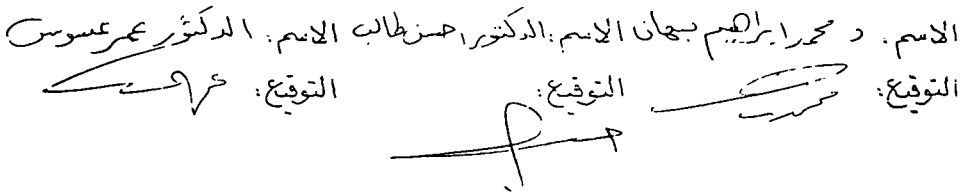 الاسم: د محمد ابراهيم نبهان الاسم: الدكتور احسن طالب الاسم: الدكتور عمر عسوس
التوقيع: التوقيع: التوقيع: